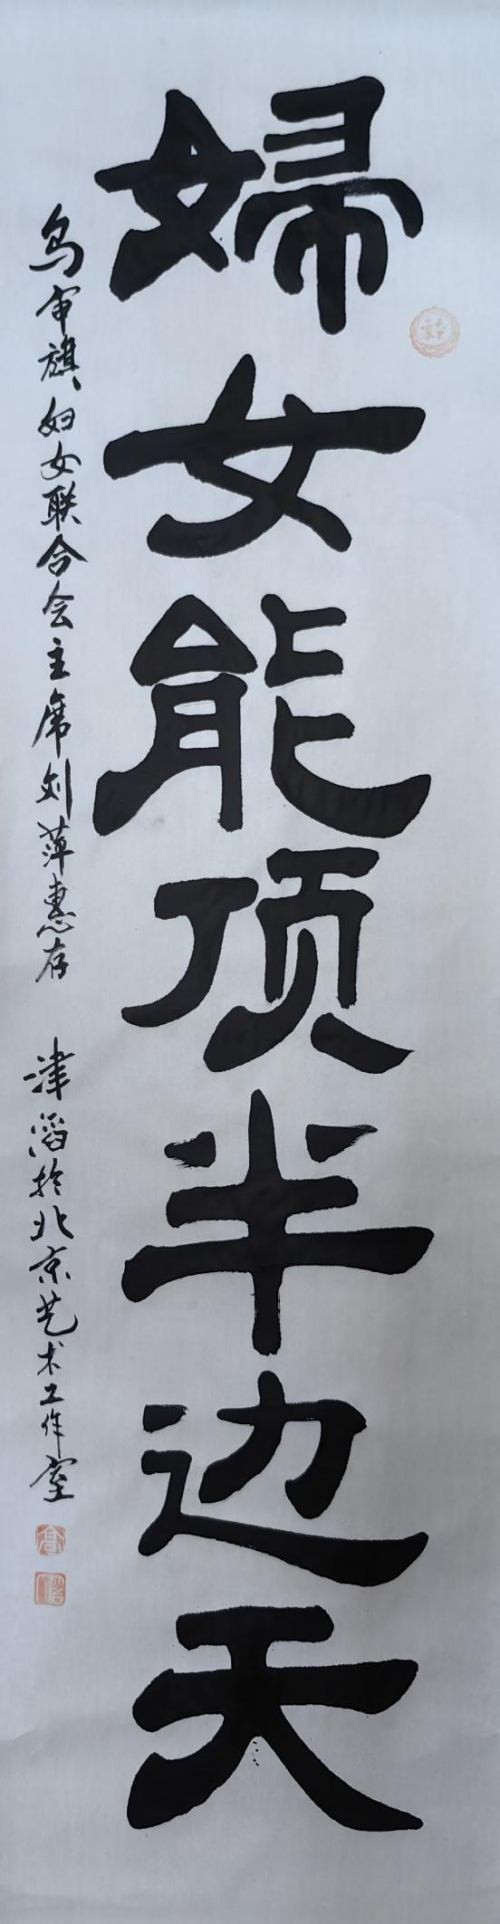 婦女能顶半边天
乌审旗妇女联合会主席刘萍惠存
津滔於北京艺术工作室